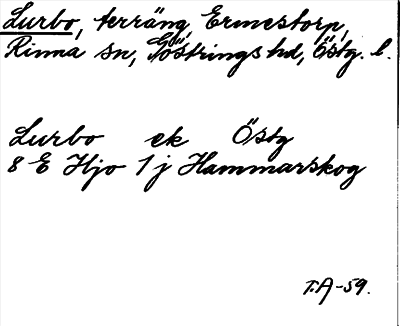 Lurbo, terräng, Ermestorp,
Rinna sn, Göstrings hd, Östg. l.
Lurbo ek Östg
8 E Hjo 1 j Hammarskog
T.A-59.